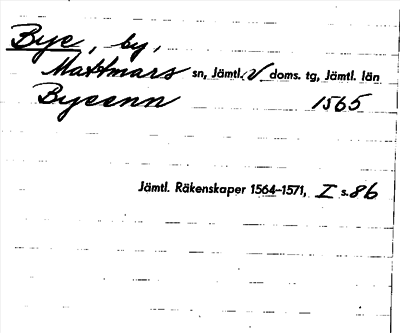 Bye, by,
Mattmars sn, Jämtl. V doms. tg, Jämtl. län
Byeenn 1565
Jämtl. Räkenskaper 1564–1571, I s. 86